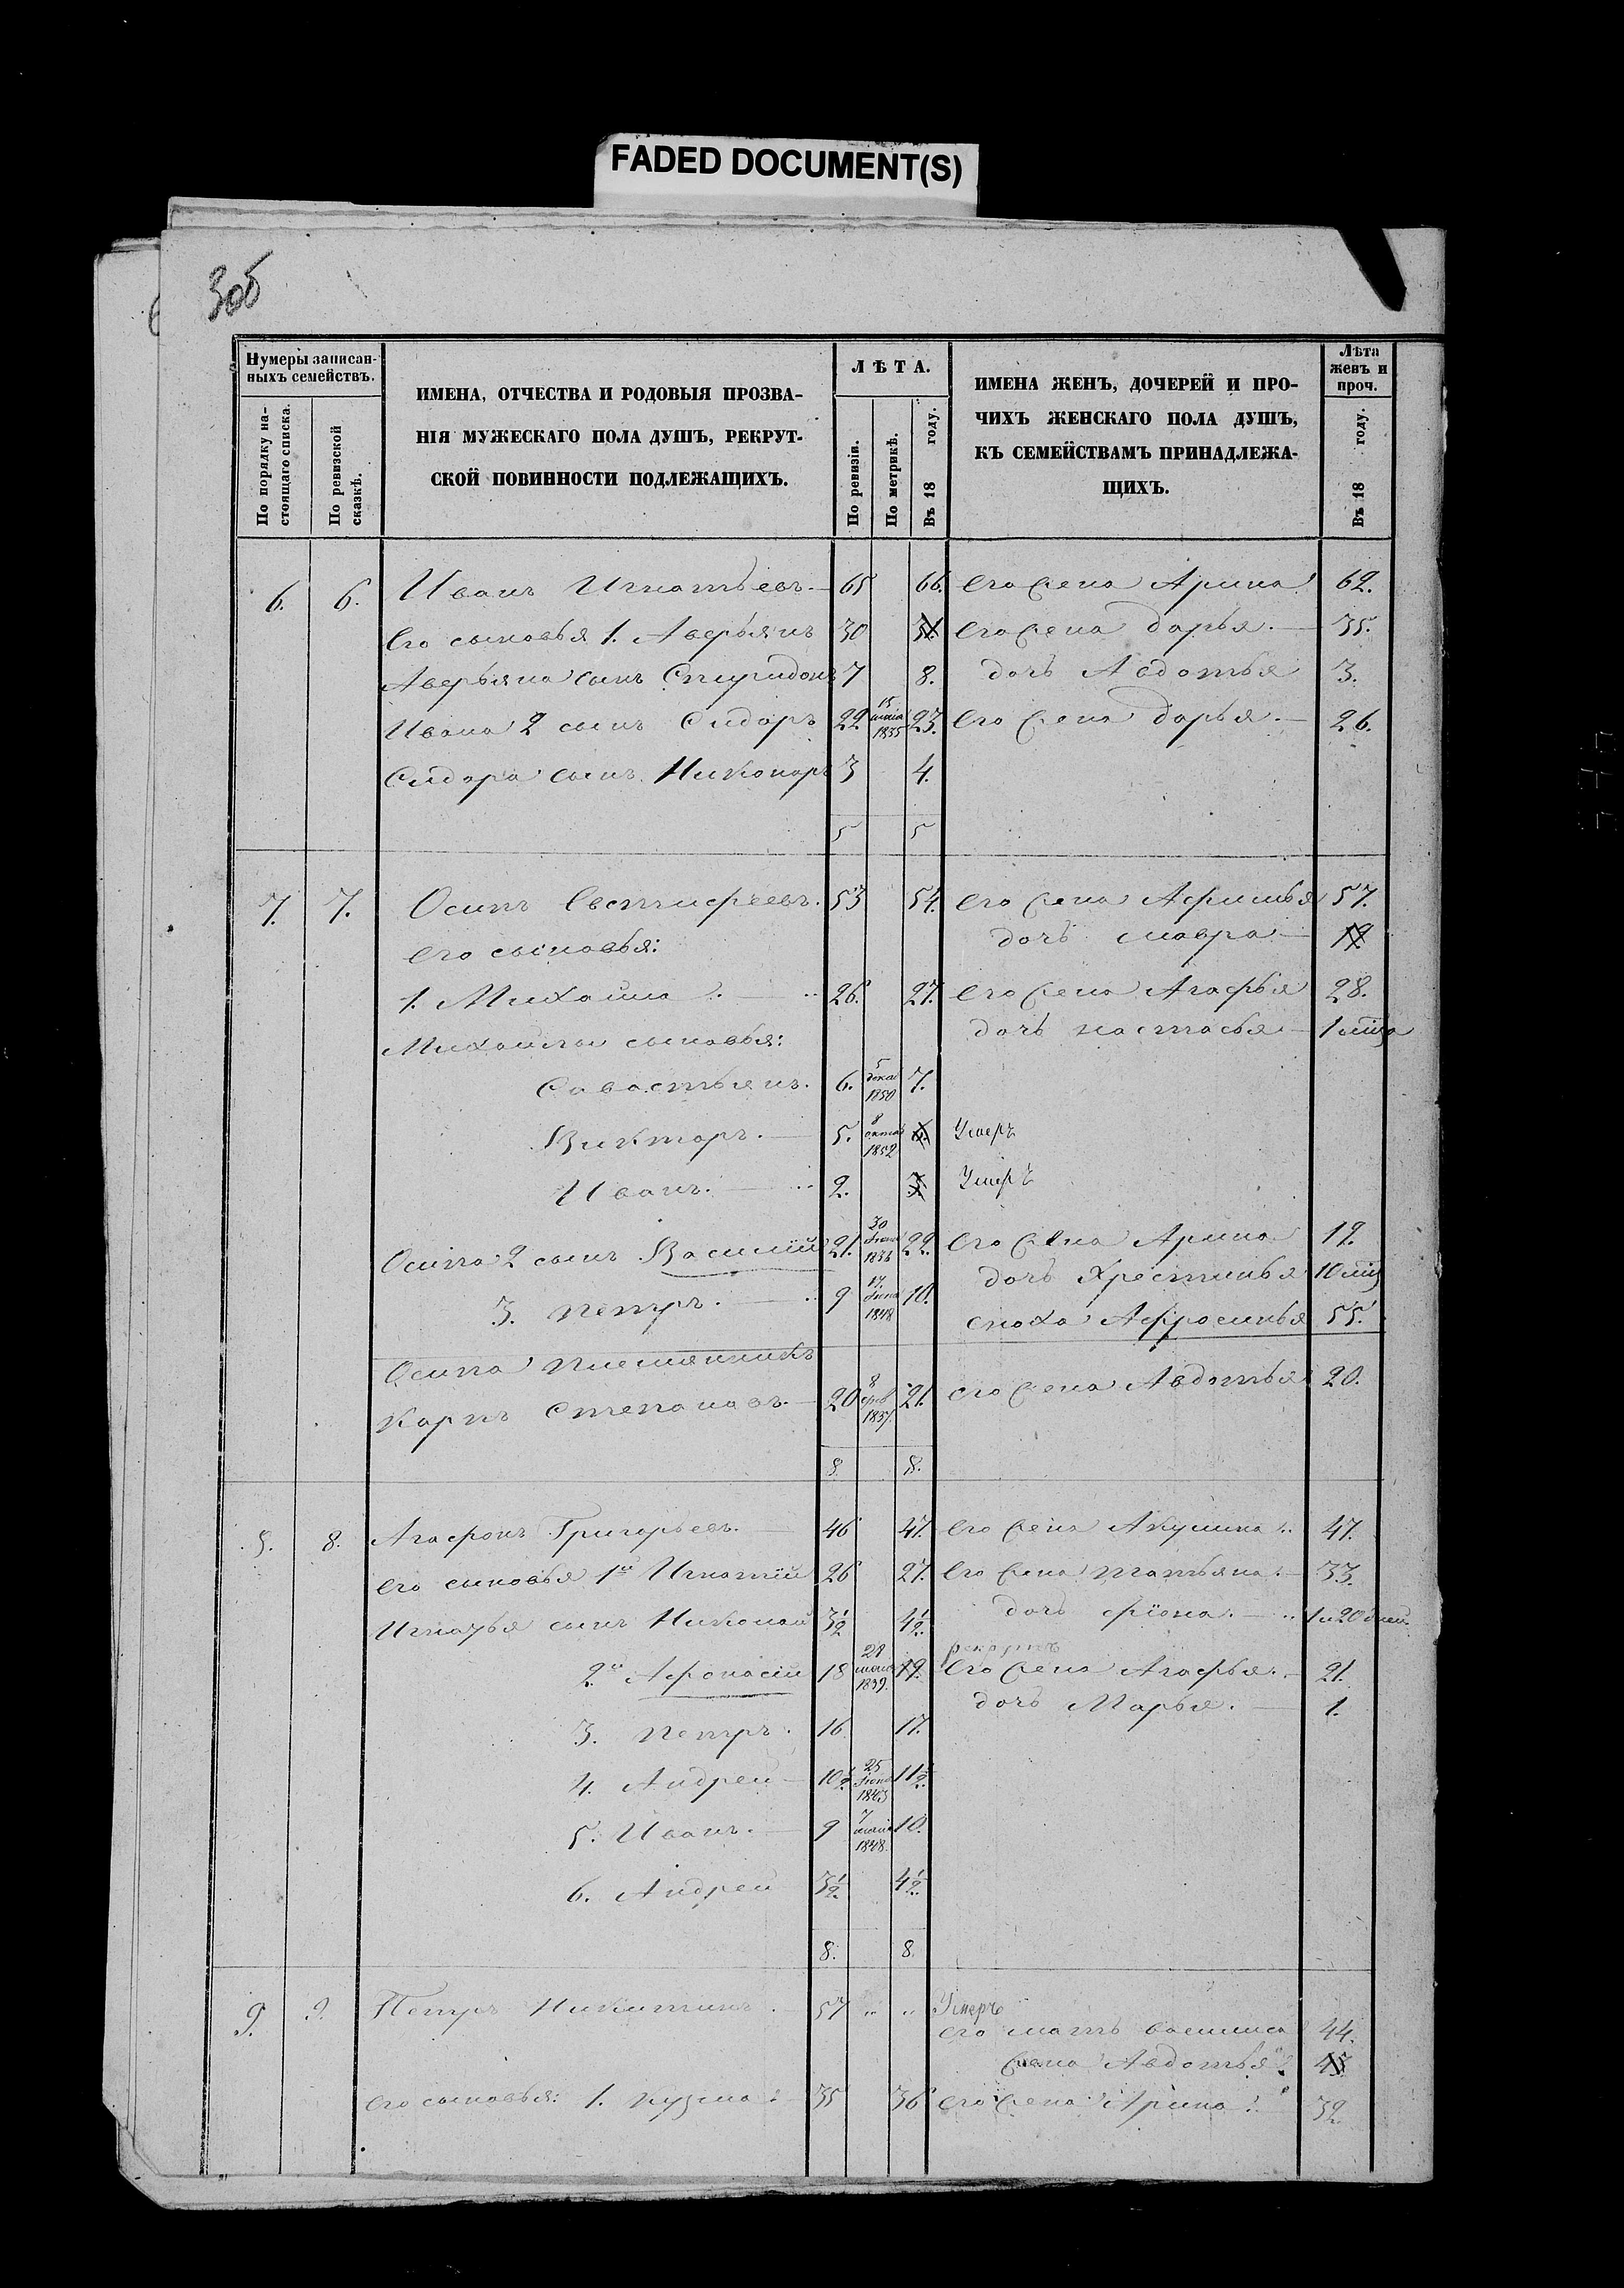 FADED DOCUMENT(S)
306
Нумеры записан-
ныхъ семействъ.
По порядку на-
стоящаго списка.
По ревизской
сказкѣ.
ИМЕНА, ОТЧЕСТВА И РОДОВЫЯ ПРОЗВА-
НІЯ МУЖЕСКАГО ПОЛА ДУШЪ, РЕКРУТ-
СКОЙ ПОВИННОСТИ ПОДЛЕЖАЩИХЪ.
ЛѢТА.
По ревизіи.
По метрикѣ.
Въ 18 году.
ИМЕНА ЖЕНЪ, ДОЧЕРЕЙ И ПРО-
ЧИХЪ ЖЕНСКАГО ПОЛА ДУШЪ,
КЪ СЕМЕЙСТВАМЪ ПРИНАДЛЕЖА-
ЩИХЪ.
Лѣта
женъ и
проч.
Въ 18 году.
6. 6. Иванъ Игнатьевъ. 65 66. Его жена Арина 62.
Его сыновья 1. Аверьянъ 30 31. Его жена Дарья. 35.
Аверьяна сынъ Спиридонъ 7 8. дочь Авдотья 3.
Ивана 2 сынъ Сидоръ 22. 15 маія 1835 23. Его жена Дарья. 26.
Сидора сынъ Никоноръ 3 4.
5 5
7. 7. Осипъ Евстифеевъ. 53 54. Его жена Афимья 57.
Его сыновья: дочь Мавра 19.
1. Михайла 26. 27. Его жена Агафья 28.
Михайлы сыновья: дочь Настасья 1
Савастьянъ. 6. 5 дека 1850 7.
Викторъ. 5. 8 октяб 1852 6. Умеръ
Иванъ. 2. 3 Умеръ
Осипа 2 сынъ Василій 21. 30 1836 22. Его жена Арина 19.
дочь Хрестинья 10
3. Петръ. 9 17. 1848 10.
сноха Афросинья 55.
Осипа племянникъ
Карпъ Степановъ. 20 8 фев 1837. 21. его жена Авдотья 20.
8. 8.
8. 8. Агафонъ Григорьевъ. 46 47. Его жена Акулина. 47.
Его сыновья 1й Игнатій 26 27. Его жена Татьяна. 33.
Игнатья сынъ Николай 3½ 4½. дочь Фіона. 1 и 20 дней.
рекрутъ
2й Афонасій 18 1839. 19. Его жена Агафья. 21.
дочь Марья. 1.
3. Петръ. 16 17.
4. Андрей 10½ 25 11½.
5. Иванъ. 9 7 маія 1848. 10.
6. Андрей 3½. 4½.
8. 8.
9. 9. Петръ Никитинъ. 57 " " Умеръ
его мать Василиса 44.
жена Авдотья. 43
Его сыновья: 1. Кузма: 35 36 Его жена Арина. 32.